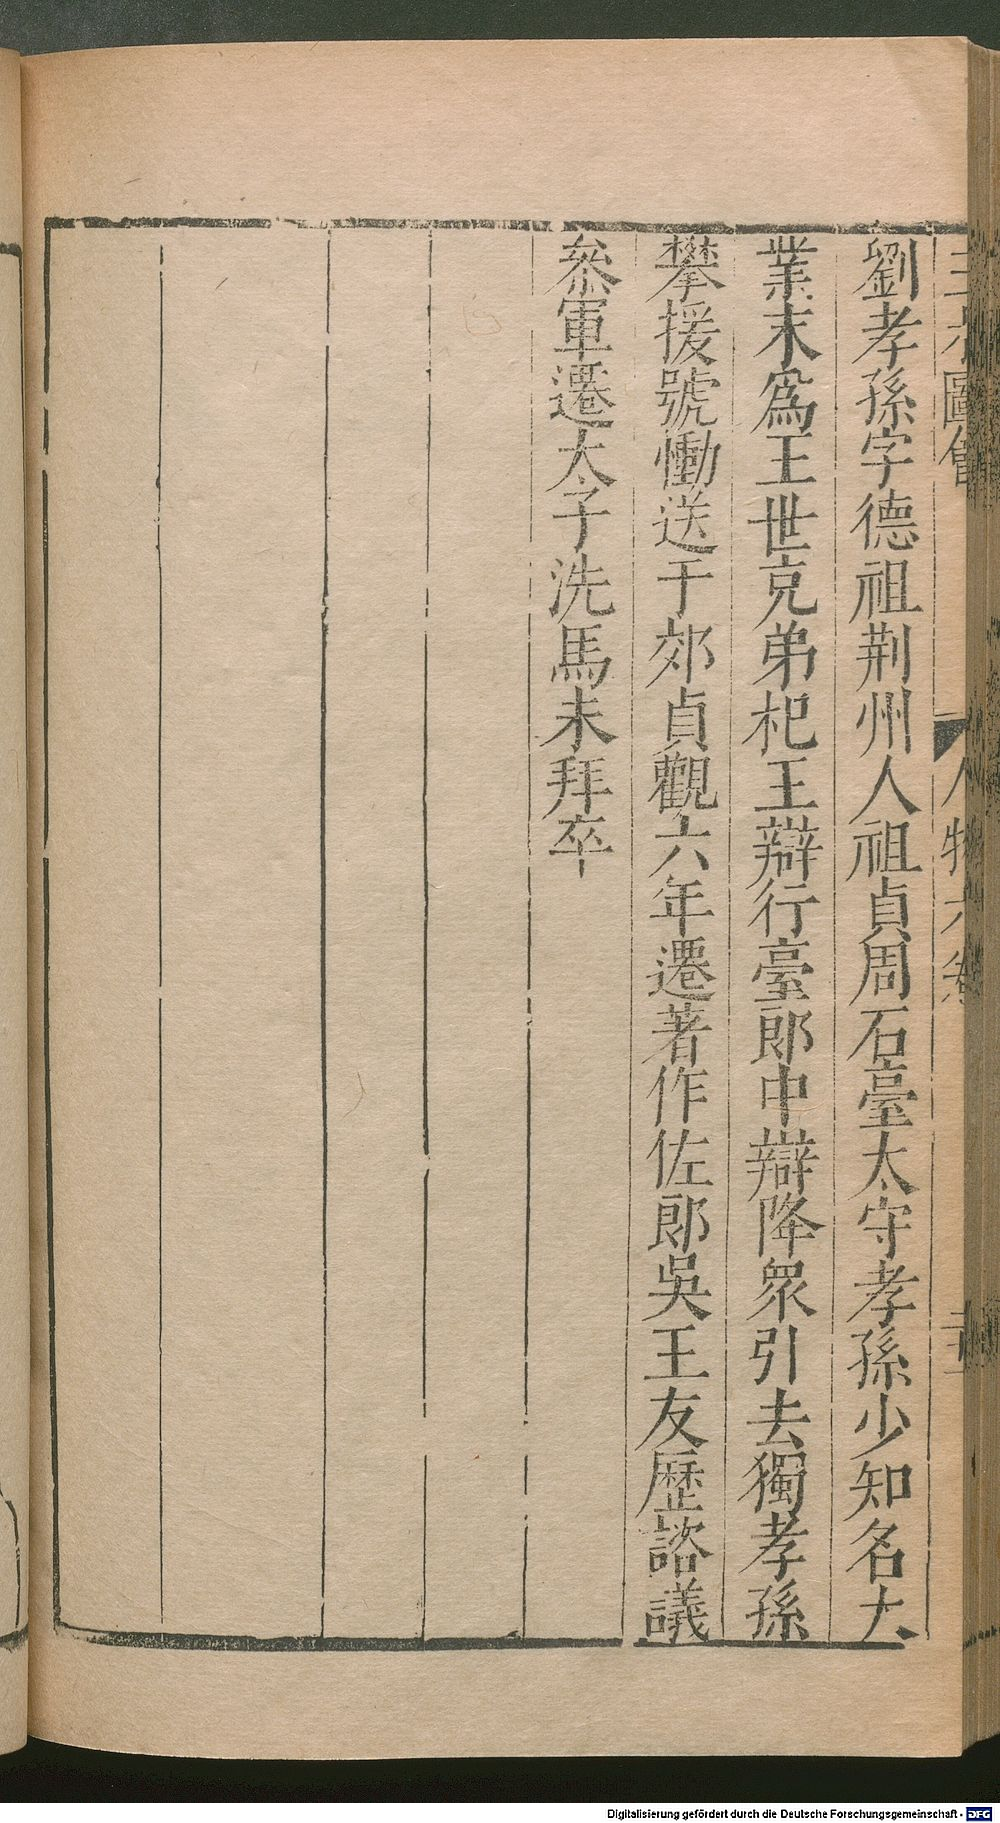 劉孝孫字德祖荆州人祖貞周石臺太守孝孫少知名大
業末爲王世充弟杞王辯行臺郎中辯降衆引去獨孝孫
攀援號慟送于郊貞觀六年遷著作佐郎吳王友歷諮議
叅軍遷太子洗馬未拜卒
圖會
人物六卷
Digitalisierung gefördert durch die Deutsche Forschungsgemeinschaft - DFG